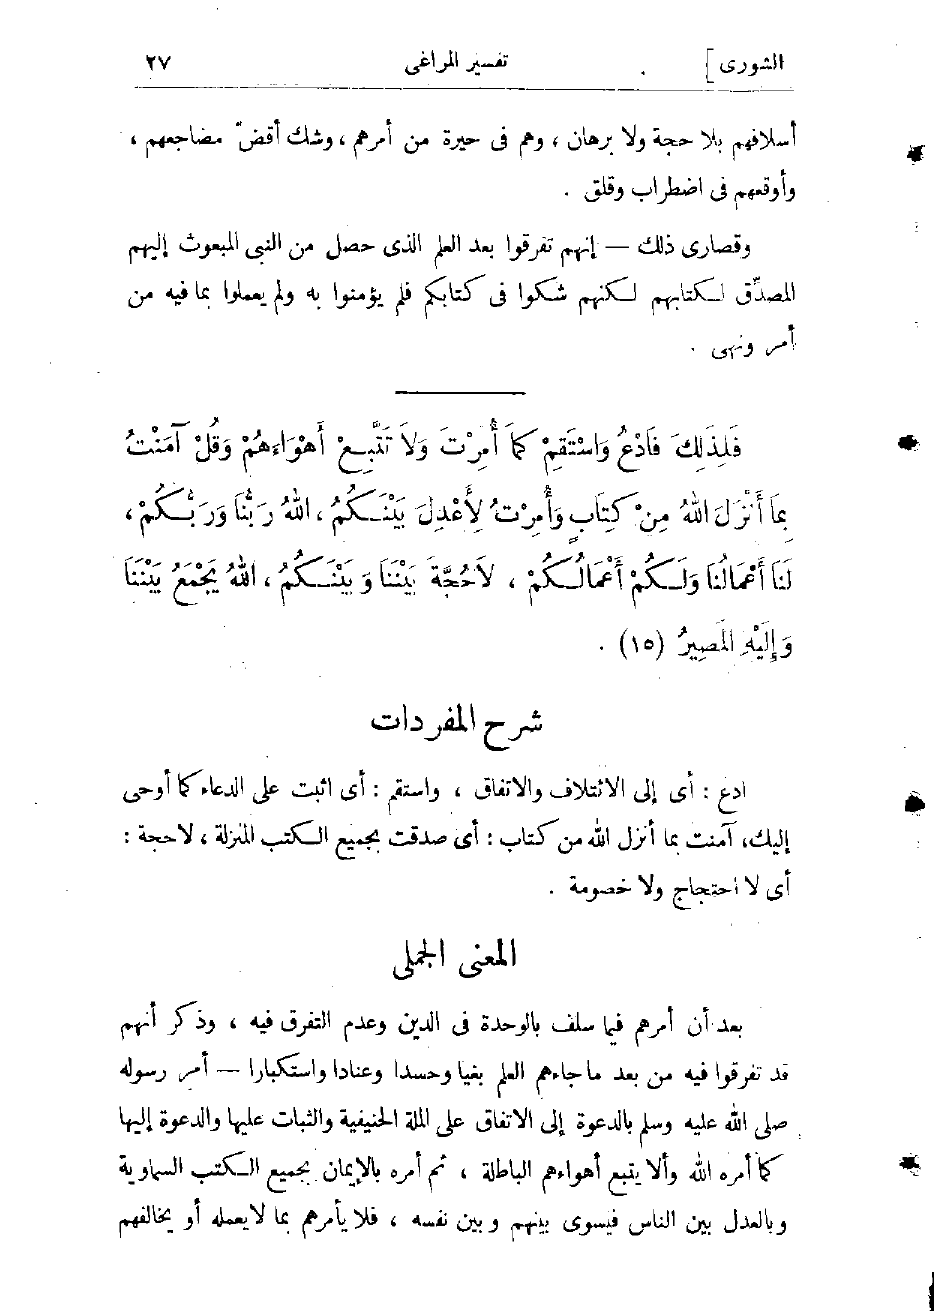 الشورى] تفسير المراغى ٢٧
أسلافهم بلا حجة ولا برهان ، وهم فى حيرة من أمرهم ، وشك أقضّ مضاجعهم ،
وأوقعهم فى اضطراب وقلق .
وقصارى ذلك — إنهم تفرقوا بعد العلم الذى حصل من النبى المبعوث إليهم
المصدّق لكتابهم لكنهم شكوا فى كتابكم فلم يؤمنوا به ولم يعملوا بما فيه من
أمر ونهى .
فَلِذَلِكَ فَادْعُ وَاسْتَقِمْ كَمَا أُمِرْتَ وَلاَ تَتَّبِعْ أَهْوَاءَهُمْ وَقُلْ آمَنْتُ
بِمَا أَنْزَلَ اللهُ مِنْ كِتَابٍ وَأُمِرْتُ لِأَعْدِلَ بَيْنَكُمُ ، اللهُ رَبُّنَا وَرَبُّكُمْ ،
لَنَا أَعْمَالُنَا وَلَكُمْ أَعْمَالُكُمْ ، لاَحُجَّةَ بَيْنَنَا وَبَيْنَكُمُ ، اللهُ يَجْمَعُ بَيْنَنَا
وَإِلَيْهِ الْمَصِيرُ (١٥) .
شرح المفردات
ادع : أى إلى الائتلاف والاتفاق ، واستقم : أى اثبت على الدعاء كما أوحى
إليك، آمنت بما أنزل الله من كتاب : أى صدقت بجميع الكتب المنزلة ، لاحجة :
أى لا احتجاج ولا خصومة .
المعنى الجملى
بعد أن أمرهم فيما سلف بالوحدة فى الدين وعدم التفرق فيه ، وذكر أنهم
قد تفرقوا فيه من بعد ماجاءهم العلم بغيا وحسدا وعنادا واستكبارا — أمر رسوله
صلى الله عليه وسلم بالدعوة إلى الاتفاق على الملة الحنيفية والثبات عليها والدعوة إليها
كما أمره الله وألا يتبع أهواءهم الباطلة ، ثم أمره بالإيمان بجميع الكتب السماوية
وبالعدل بين الناس فيسوى بينهم وبين نفسه ، فلا يأمرهم بما لايعمله أو يخالفهم